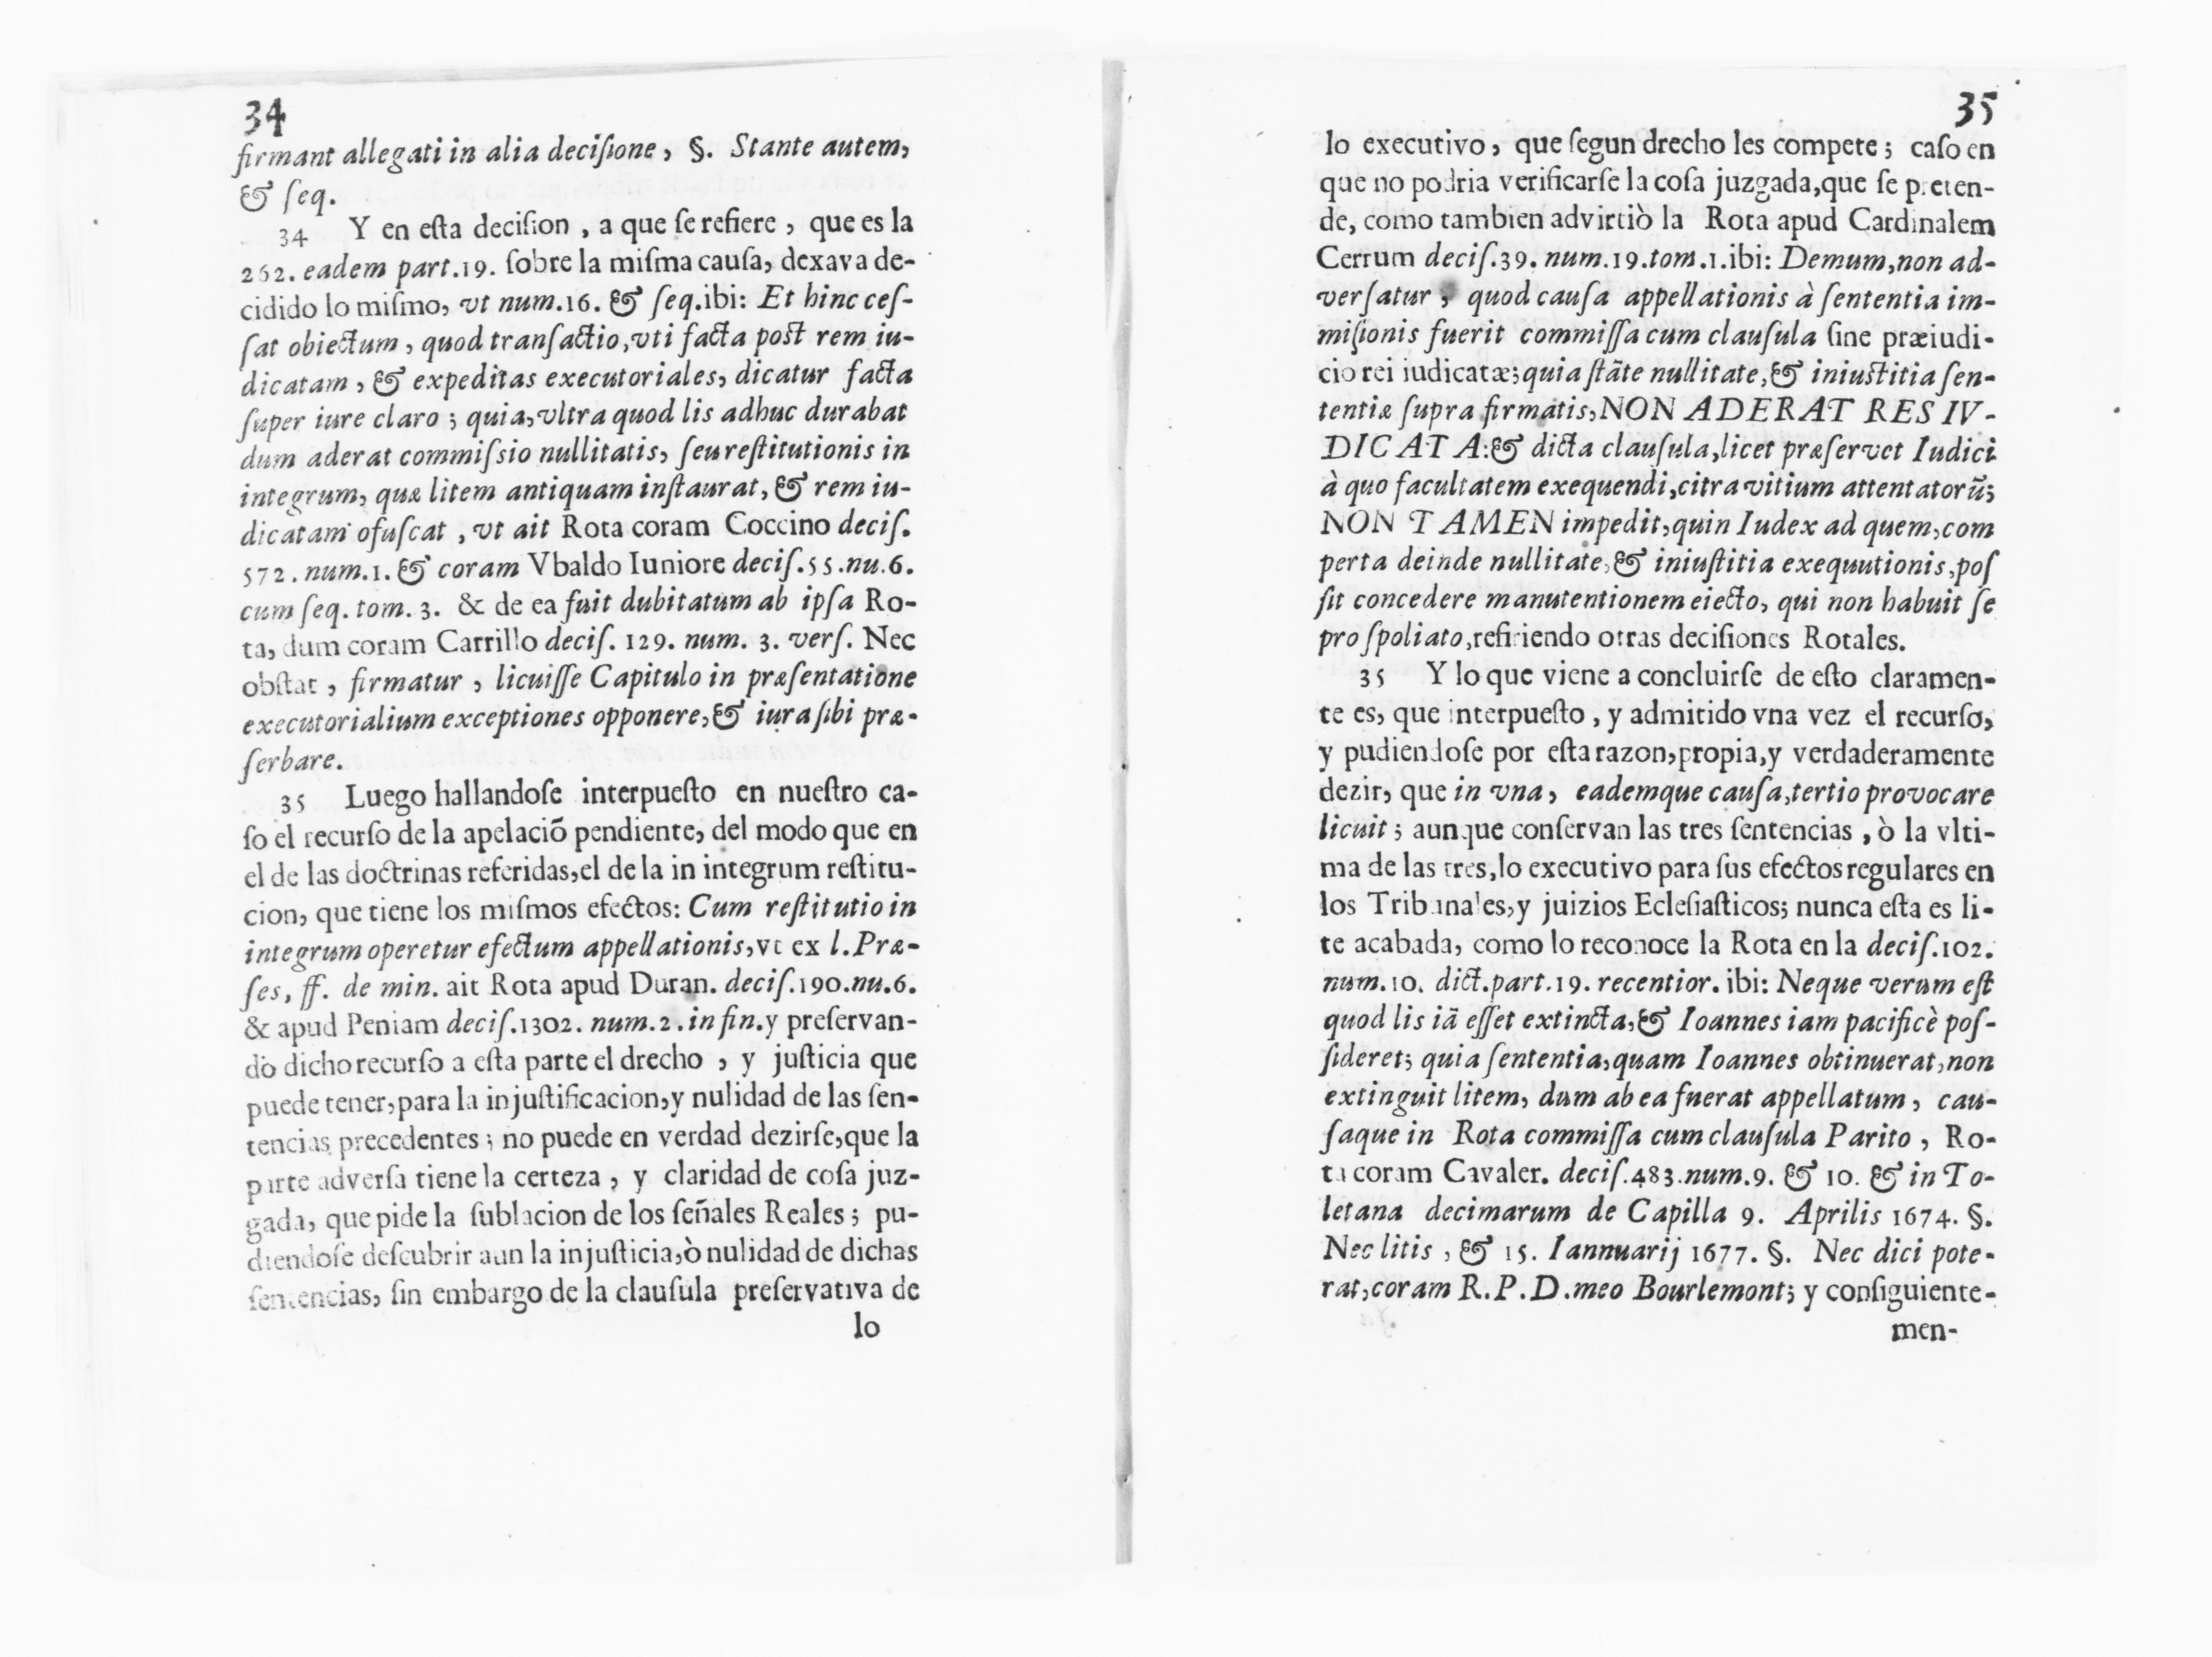 34
firmant allegati in alia deciſione, §. Stante autem,
& ſeq.
34 Y en eſta deciſion, a que ſe refiere, que es la
262. eadem part.19. ſobre la miſma cauſa, dexava de-
cidido lo miſmo, vt num.16. & ſeq.ibi: Et hinc ceſ-
ſat obiectum, quod tranſactio,vti facta post rem iu-
dicatam, & expeditas executoriales, dicatur facta
ſuper iure claro; quia,vltra quod lis adhuc durabat
dum aderat commiſsio nullitatis, ſeu reſtitutionis in
integrum, quæ litem antiquam inſtaurat, & rem iu-
dicatam ofuſcat, vt ait Rota coram Coccino deciſ.
572. num.1. & coram Vbaldo Iuniore deciſ.55.nu.6.
cum ſeq. tom. 3. & de ea fuit dubitatum ab ipſa Ro-
ta, dum coram Carrillo deciſ. 129. num. 3. verſ. Nec
obſtat, firmatur, licuiſſe Capitulo in præſentatione
executorialium exceptiones opponere,& iura ſibi præ-
ſerbare.
35 Luego hallandoſe interpueſto en nueſtro ca-
ſo el recurſo de la apelaciõ pendiente, del modo que en
el de las doctrinas referidas,el de la in integrum reſtitu-
cion, que tiene los miſmos efectos: Cum reſtitutio in
integrum operetur efectum appellationis,vt ex l.Præ-
ſes, ff. de min. ait Rota apud Duran. deciſ.190.nu.6.
& apud Peniam deciſ.1302. num.2.in fin.y preſervan-
do dicho recurſo a eſta parte el drecho, y juſticia que
puede tener,para la injuſtificacion,y nulidad de las ſen-
tencias precedentes; no puede en verdad dezirſe,que la
parte adverſa tiene la certeza, y claridad de coſa juz-
gada, que pide la ſublacion de los ſeñales Reales; pu-
diendoſe deſcubrir aun la injuſticia,ò nulidad de dichas
ſentencias, ſin embargo de la clauſula preſervativa de
lo
35
lo executivo, que ſegun drecho les compete; caſo en
que no podria verificarſe la coſa juzgada,que ſe preten-
de, como tambien advirtiò la Rota apud Cardinalem
Cerrum deciſ.39. num.19.tom.1.ibi: Demum,non ad-
verſatur, quod cauſa appellationis à ſententia im-
miſsionis fuerit commiſſa cum clauſula ſine præiudi-
cio rei iudicatæ;quia ſtãte nullitate,& iniustitia ſen-
tentiæ ſupra firmatis,NON ADERAT RES IV-
DICATA:& dicta clauſula,licet præſervet Iudici
à quo facultatem exequendi,citra vitium attentatorũ;
NON TAMEN impedit,quin Iudex ad quem,com
perta deinde nullitate,& iniuſtitia exequutionis,poſ
ſit concedere manutentionem eiecto, qui non habuit ſe
pro ſpoliato,refiriendo otras deciſiones Rotales.
35 Y lo que viene a concluirſe de eſto claramen-
te es, que interpueſto, y admitido vna vez el recurſo,
y pudiendoſe por eſta razon,propia,y verdaderamente
dezir, que in vna, eademque cauſa,tertio provocare
licuit; aunque conſervan las tres ſentencias, ò la vlti-
ma de las tres,lo executivo para ſus efectos regulares en
los Tribunales,y juizios Ecleſiaſticos; nunca eſta es li-
te acabada, como lo reconoce la Rota en la deciſ.102.
num.10. dict.part.19. recentior. ibi: Neque verum eſt
quod lis iã eſſet extincta,& Ioannes iam pacificè poſ-
ſideret; quia ſententia,quam Ioannes obtinuerat,non
extinguit litem, dum ab ea fuerat appellatum, cau-
ſaque in Rota commiſſa cum clauſula Parito, Ro-
ta coram Cavaler. deciſ.483.num.9. & 10. & in To-
letana decimarum de Capilla 9. Aprilis 1674. §.
Nec litis, & 15. Iannuarij 1677. §. Nec dici pote-
rat,coram R.P.D.meo Bourlemont; y conſiguiente-
men-